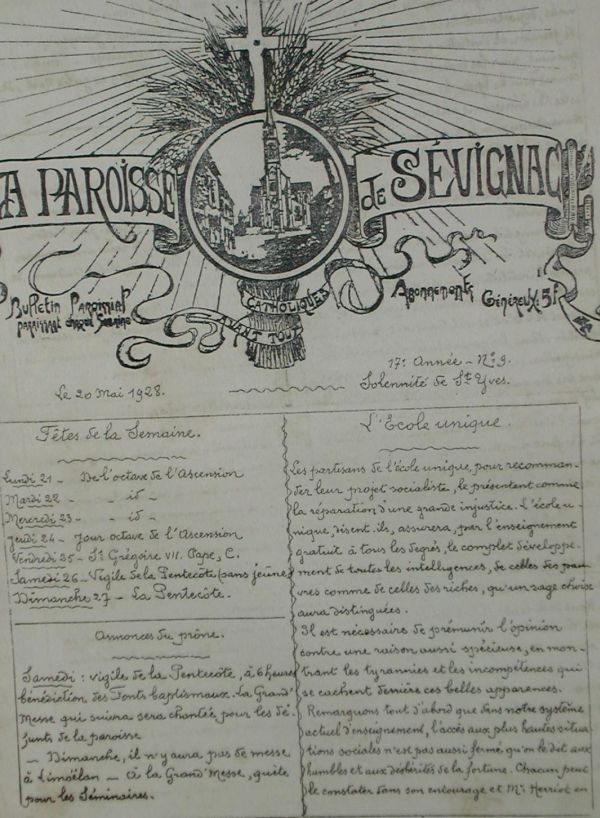 A PAROISSE de SÉVIGNAC
Bulletin Paroissial
paraissant chaque Semaine
CATHOLIQUES
AVANT TOUT
Abonnements
Généreux. 5f
Le 20 Mai 1928.
17e Année - No 9.
Solennité de St Yves.
Fêtes de la Semaine.
Lundi 21 - De l'octave de l'Ascension
Mardi 22 - - id -
Mercredi 23 - - id -
Jeudi 24 - Jour octave de l'Ascension
Vendredi 25 - St Grégoire VII. Pape, C.
Samedi 26 - Vigile de la Pentecôte (pans jeûne)
Dimanche 27 - La Pentecôte.
Annonces du prône.
Samedi : vigile de la Pentecôte, à 6 heures
bénédiction des Fonts baptismaux. La Grand'
Messe qui suivra sera chantée pour les dé-
funts de la paroisse
- Dimanche, il n'y aura pas de messe
à Limoëlan - à la Grand'Messe, quête
pour les Séminaires.
L'Ecole unique.
Les partisans de l'école unique, pour recomman-
der leur projet socialiste, le présentent comme
la réparation d'une grande injustice. L'école u-
nique, disent-ils, assurera, par l'enseignement
gratuit à tous les degrés, le complet développe-
ment de toutes les intelligences, de celles des pau
vres comme de celles des riches, qu'un sage choix
aura distinguées.
Il est nécessaire de prémunir l'opinion
contre une raison aussi spécieuse, en mon-
trant les tyrannies et les incompétences qui
se cachent derrière ces belles apparences.
Remarquons tout d'abord que dans notre système
actuel d'enseignement, l'accès aux plus hautes situa
tions sociales n'est pas aussi fermé qu'on le dit aux
humbles et aux déshérités de la fortune. Chacun peut
le constater dans son entourage et Mr Herriot en